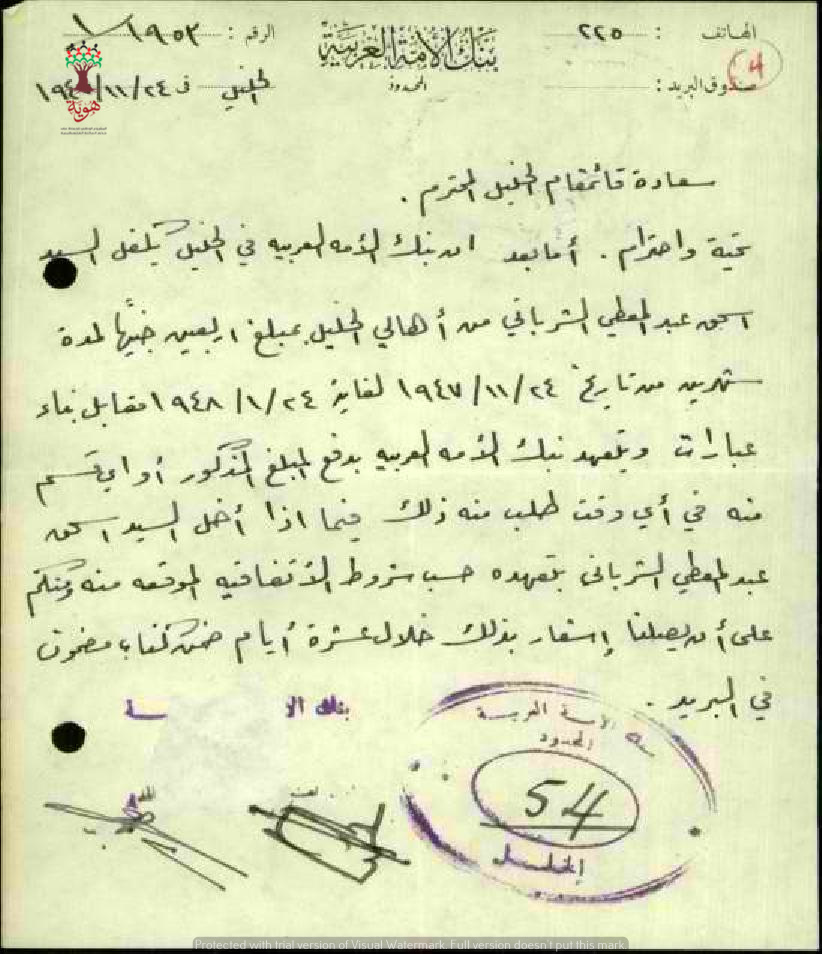 الهاتف : ٢٢٥
بنك الأمة العربية
المحدود
الرقم : ١٩٥٣/١
صندوق البريد :
4
الخليل في ٢٤/١١/١٩٤
هوية
سعادة قائمقام الخليل المحترم .
تحية واحترام . أما بعد ان بنك الأمه العربيه في الخليل يكفل السيد
اسحق عبد المعطي الشرباتي من أهالي الخليل بمبلغ اربعين جنيهاً لمدة
شهرين من تاريخ ٢٤/١١/١٩٤٧ لغاية ٢٤/١/١٩٤٨ مقابل بناء
عبارات ويتعهد بنك الأمه العربيه بدفع المبلغ المذكور أو اي قسم
منه في أي وقت طلب منه ذلك فيما اذا أخل السيد اسحق
عبد المعطي الشرباتي بتعهده حسب شروط الأتفاقيه الموقعه منه ومنكم
على أن يصلنا إشعار بذلك خلال عشرة أيام ضمن كتاب مضمون
في البريد .
بنك الا
بنك الأمة العربية
المحدود
54
الخليل
Protected with trial version of Visual Watermark. Full version doesn't put this mark.